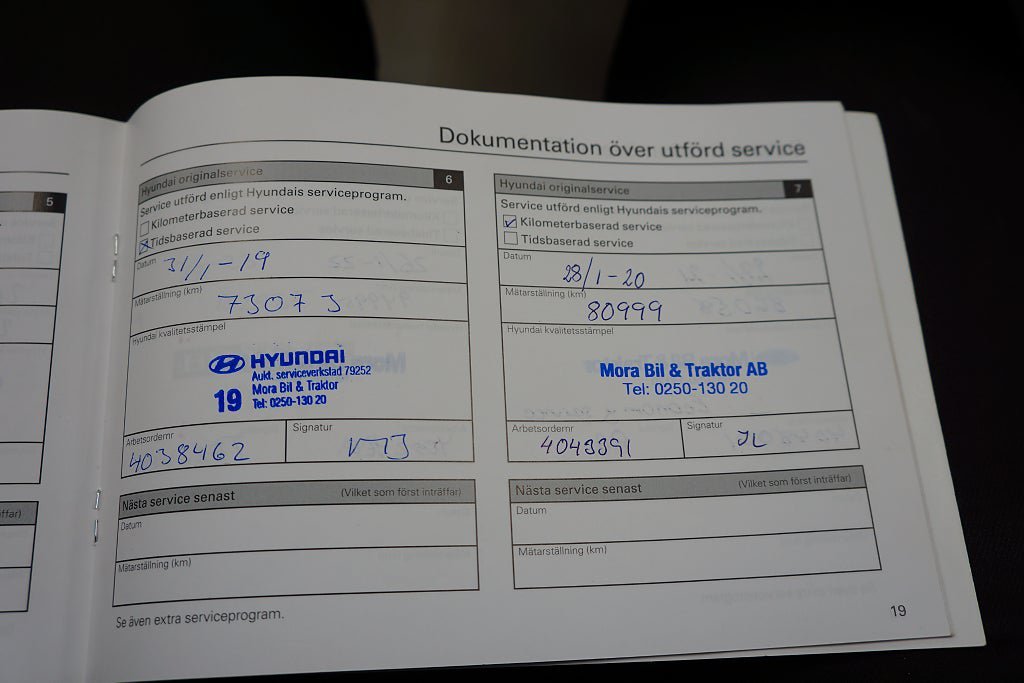 Dokumentation över utförd service
5
ffar)
Hyundai originalservice 6
Service utförd enligt Hyundais serviceprogram.
Kilometerbaserad service
Tidsbaserad service
Datum 31/1-19
Mätarställning (km) 73073
Hyundai kvalitetsstämpel
HYUNDAI
Aukt. serviceverkstad 79252
Mora Bil & Traktor
19 Tel: 0250-130 20
Arbetsordernr Signatur
4038462
Nästa service senast (Vilket som först inträffar)
Datum
Mätarställning (km)
Se även extra serviceprogram.
Hyundai originalservice 7
Service utförd enligt Hyundais serviceprogram.
Kilometerbaserad service
Tidsbaserad service
Datum
28/1-20
Mätarställning (km)
80999
Hyundai kvalitetsstämpel
Mora Bil & Traktor AB
Tel: 0250-130 20
Arbetsordernr Signatur
4043391 JL
Nästa service senast (Vilket som först inträffar)
Datum
Mätarställning (km)
19